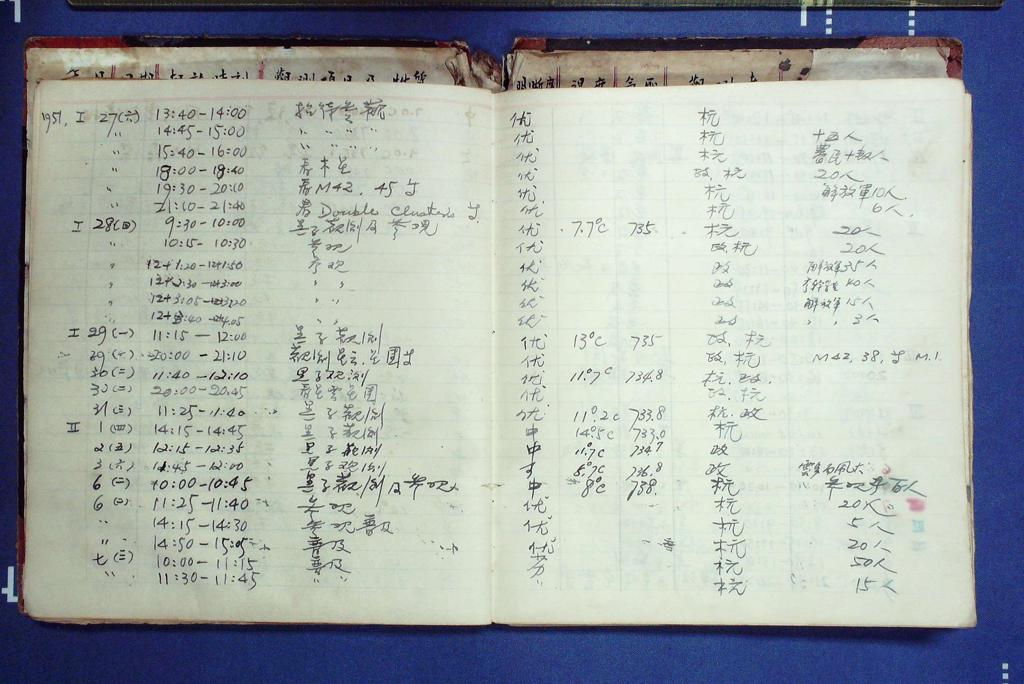 觀測項目及性質
溫度 氣压
1951. I 27(六) 13:40-14:00 招待参觀 优 杭
〃 14:45-15:00 〃 〃 〃 〃 优 杭 十五人
〃 15:40-16:00 〃 〃 〃 〃 优 杭
〃 18:00-18:40 看木星 优 政,杭 20人
〃 19:30-20:10 看M42, 45 优 杭 解放軍10人
〃 21:10-21:40 看Double Clusters 优 杭 6人
I 28(日) 9:30-10:00 黑子觀測及参观 优 7.7°C 735. 杭 20人
〃 10:15-10:30 参观 优 政.杭 20人
〃 12+1:20-12+1:50 参观 优 政 解放軍35人
〃 12+2:30-12+3:00 〃 〃 优 政 40人
〃 12+3:05-12+3:20 〃 〃 优 政 解放軍15人
〃 12+3:40-12+4:05 〃 〃 优 政 〃 〃 3人
I 29(一) 11:15-12:00 黑子觀測 优 13°C 735 政, 杭
29(一) 20:00-21:10 觀測星云,星團 优 政,杭 M42, 38, M.1.
30(二) 11:40-12:10 黑子观測 优 11.°7C 734.8 杭.政.
30(二) 20:00-20:45 看星雲星團 优 政.杭
31(三) 11:25-11:40 黑子觀測 优 11°.2C 733.8 杭.政
II 1(四) 14:15-14:45 黑子觀測 中 14°.5C 733.0 杭
2(五) 12:15-12:35 黑子觀測 中 11.°7C 734.7 政
3(六) 11:45-12:00 黑子观測 8.°7C 736.8 政
6(二) 10:00-10:45 黑子觀測及参观 中 8°C 738. 杭
6(二) 11:25-11:40 参观 优 杭 20人
〃 14:15-14:30 参观普及 优 杭 5人
〃 14:50-15:05 普及 优 杭 20人
七(三) 10:00-11:15 普及 杭 50人
〃 11:30-11:45 〃 〃 杭 15人